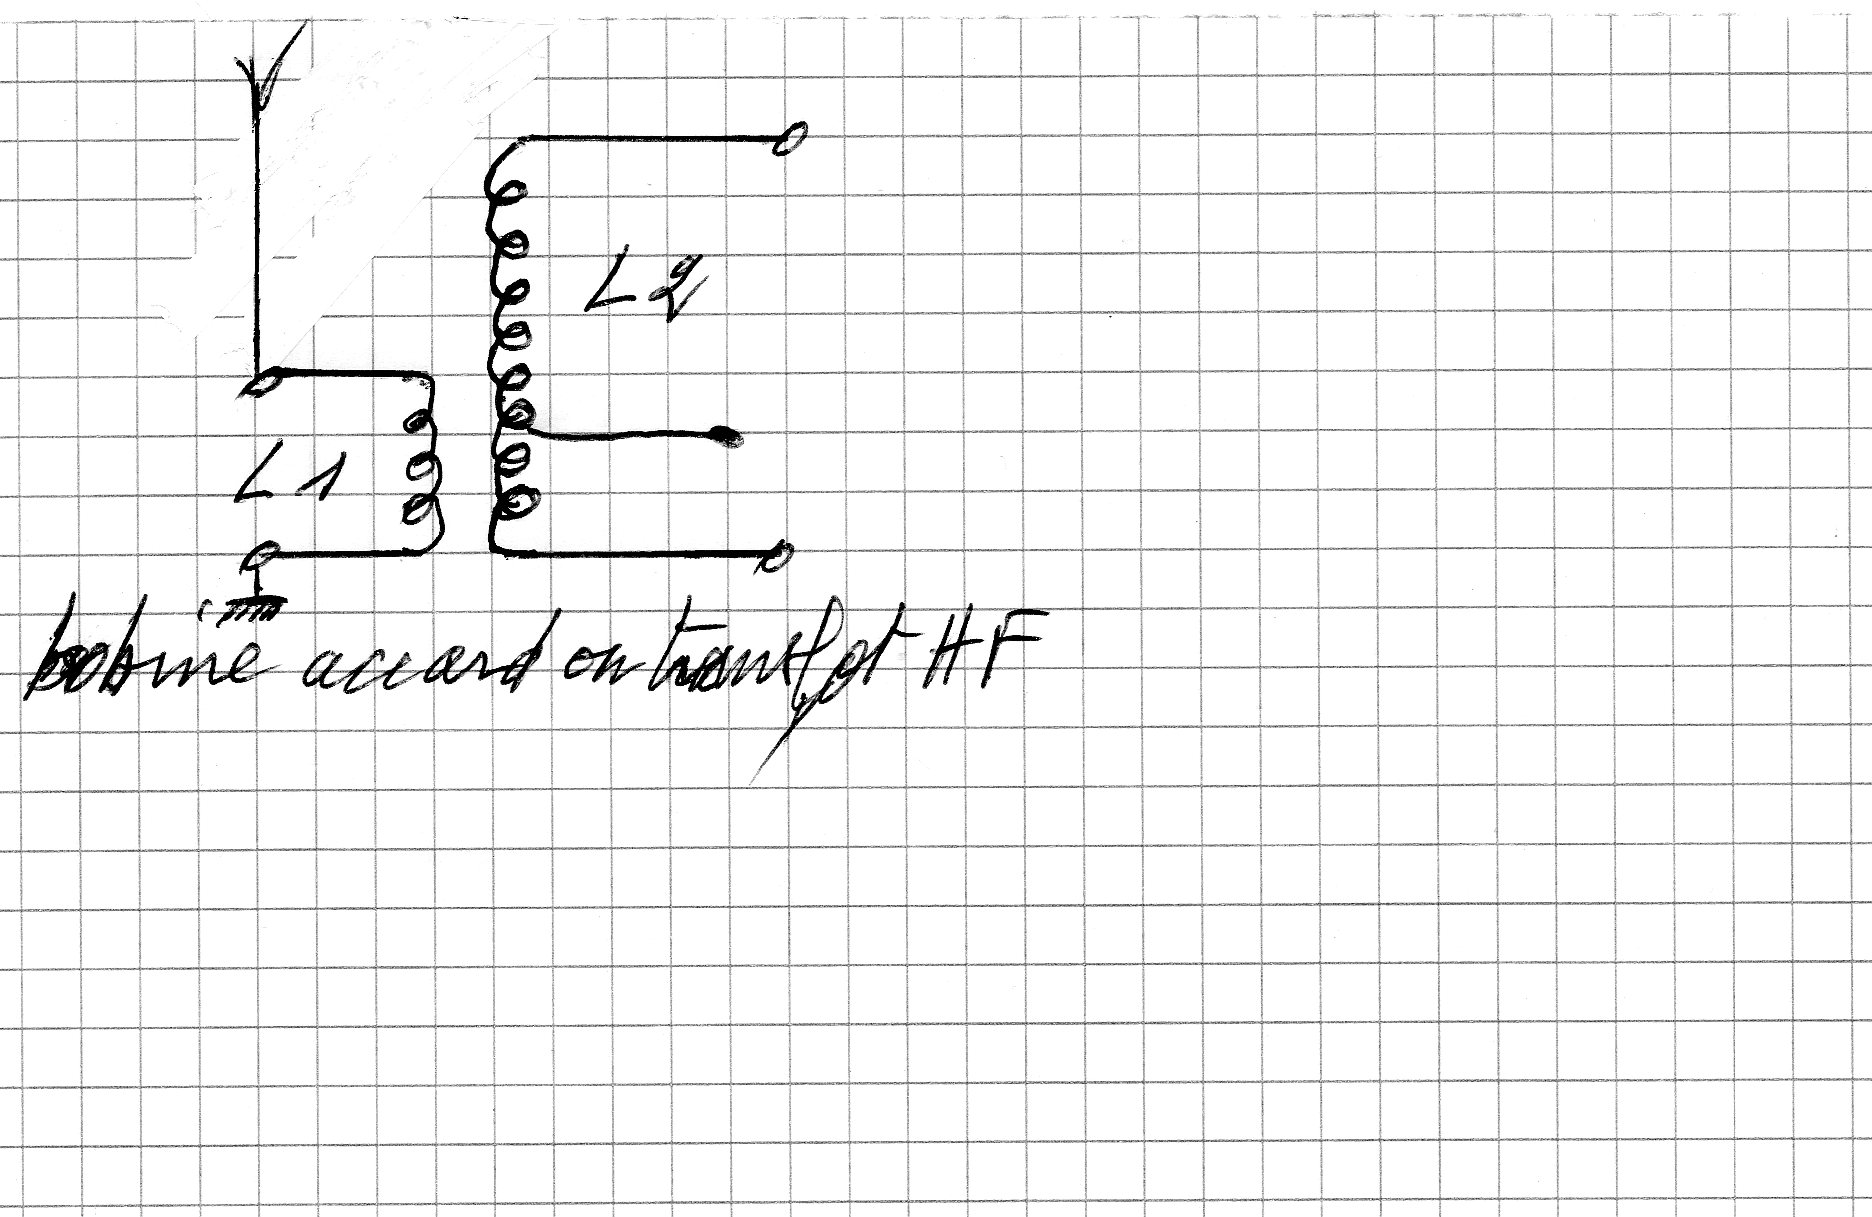 L2
L1
bobine accord ou transfot HF